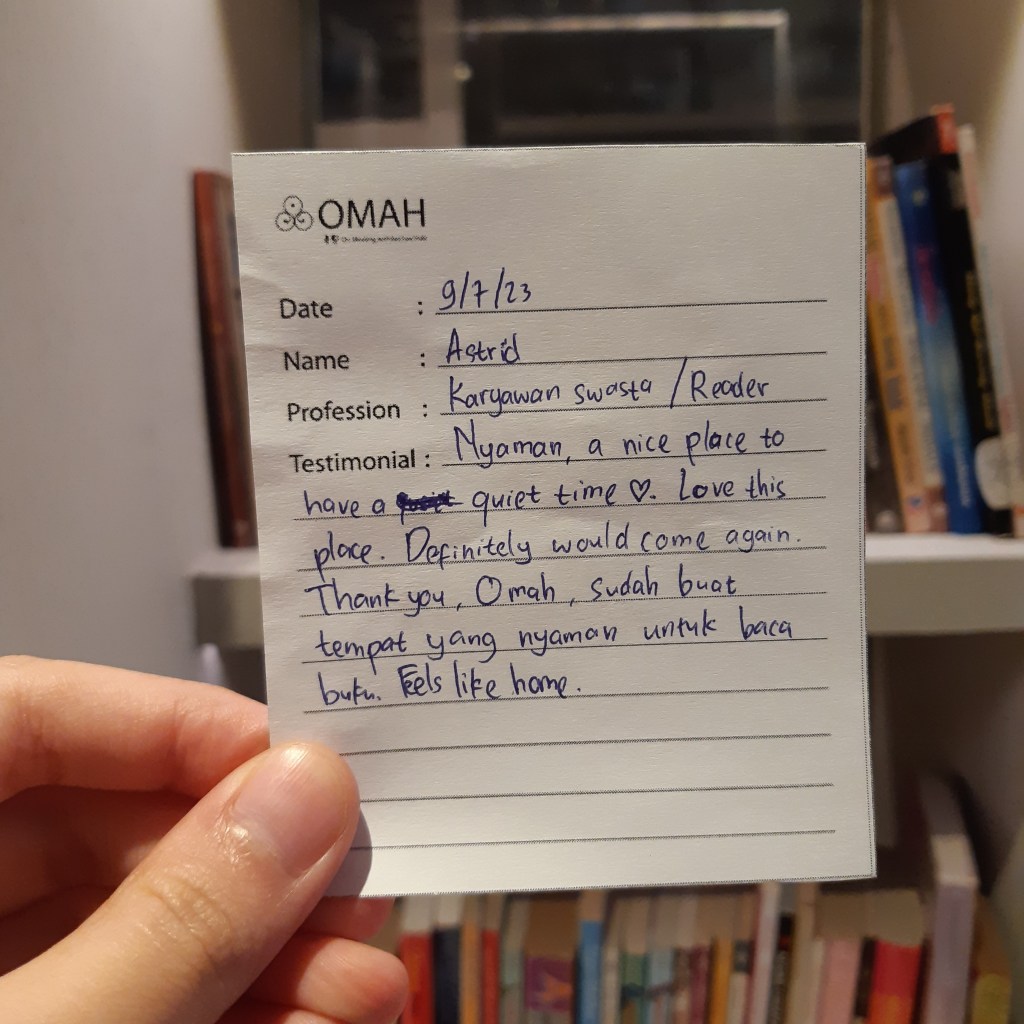 OMAH
Date : 9/7/23
Name : Astrid
Profession : Karyawan swasta / Reader
Testimonial : Nyaman, a nice place to
have a quiet time ♡. Love this
place. Definitely would come again.
Thank you, Omah, sudah buat
tempat yang nyaman untuk baca
buku. Feels like home.